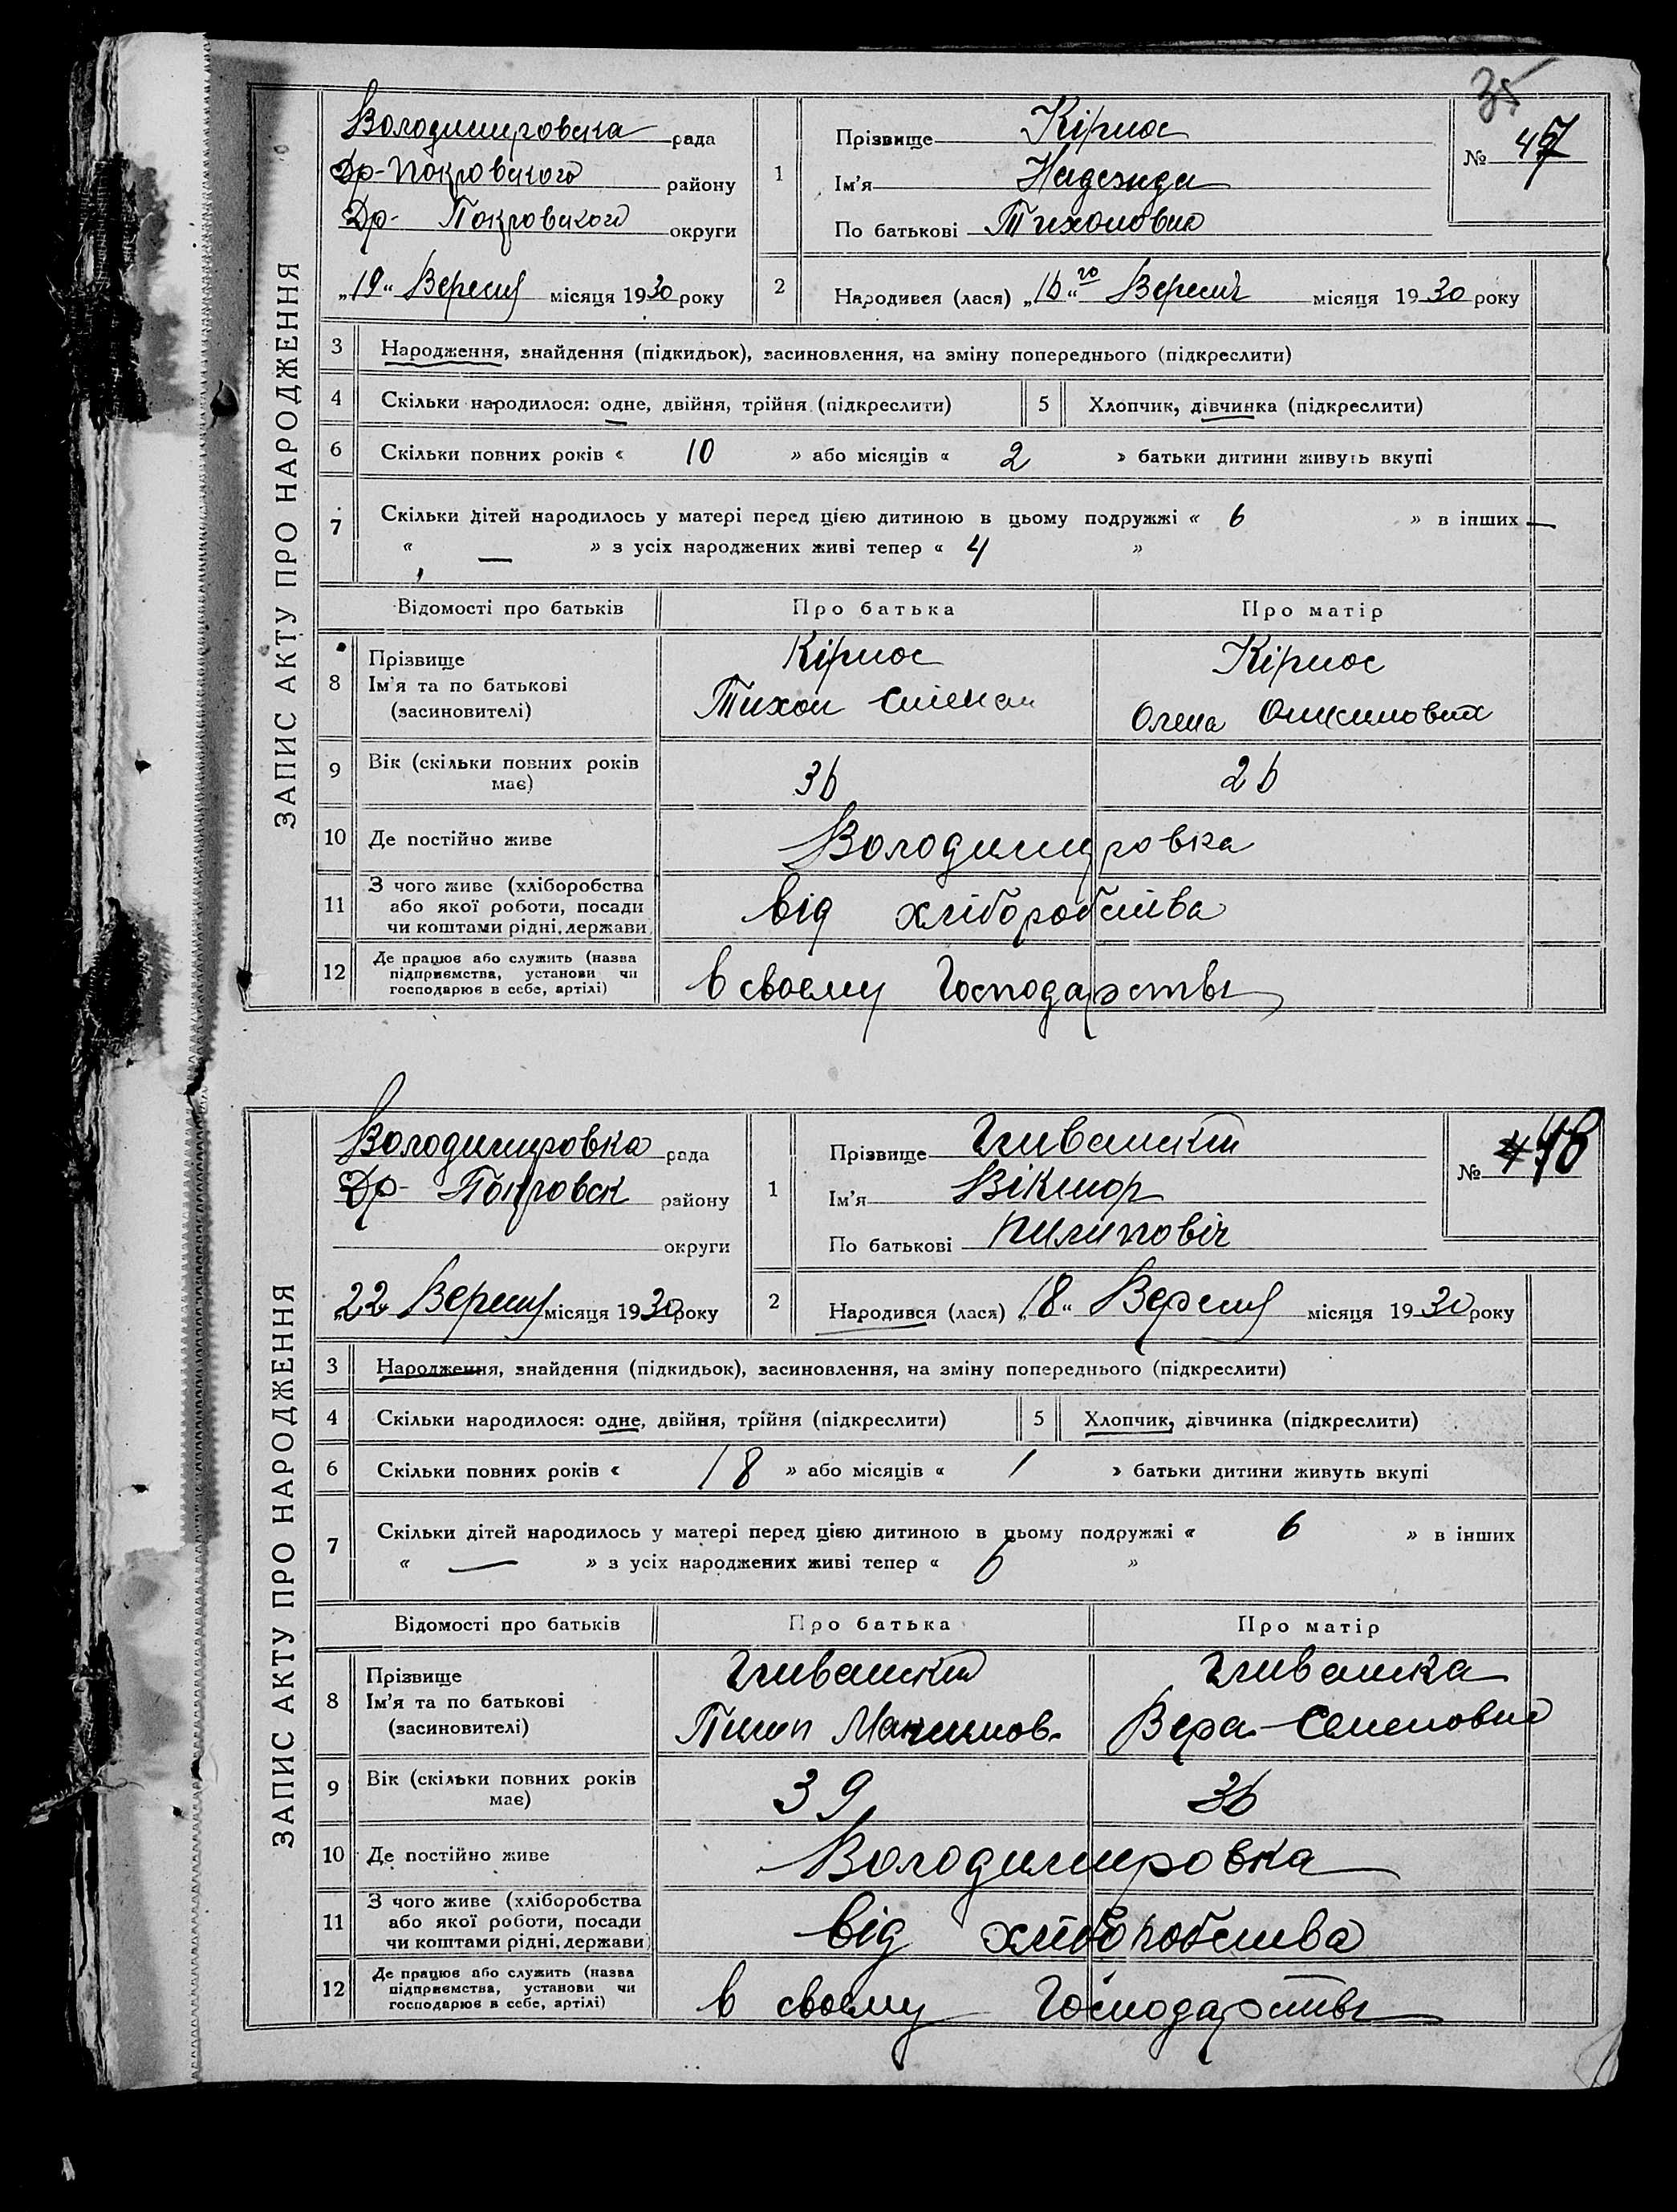 35
ЗАПИС АКТУ ПРО НАРОДЖЕННЯ
Володимировска рада
Др-Покровского району
Др- Покровского округи
„19“ Вересня місяця 1930 року
1
Прізвище Кірнос
Ім'я Надежда
По батькові Тихоновна
№ 47
2
Народився (лася) „16го“ Вересня місяця 1930 року
3 Народження, знайдення (підкидьок), засиновлення, на зміну попереднього (підкреслити)
4 Скільки народилося: одне, двійня, трійня (підкреслити) 5 Хлопчик, дівчинка (підкреслити)
6 Скільки повних років « 10 » або місяців « 2 » батьки дитини живуть вкупі
7 Скільки дітей народилось у матері перед цією дитиною в цьому подружжі « 6 » в інших —
« — » з усіх народжених живі тепер « 4 »
Відомості про батьків Про батька Про матір
8 Прізвище Кірнос Кірнос
Ім'я та по батькові Тихон Олена
(засиновителі)
9 Вік (скільки повних років має) 36 26
10 Де постійно живе Володимировка
11 З чого живе (хліборобства або якої роботи, посади чи коштами рідні, держави від хліборобства
12 Де працює або служить (назва підприємства, установи чи господарює в себе, артілі) в своєму Господарствы
ЗАПИС АКТУ ПРО НАРОДЖЕННЯ
Володимировка рада
Др- Покровск району
округи
„22 Вересня місяця 1930 року
1
Прізвище
Ім'я Віктор
По батькові Пилиповіч
№ 48
2
Народився (лася) „18“ Вересня місяця 1930 року
3 Народження, знайдення (підкидьок), засиновлення, на зміну попереднього (підкреслити)
4 Скільки народилося: одне, двійня, трійня (підкреслити) 5 Хлопчик, дівчинка (підкреслити)
6 Скільки повних років « 18 » або місяців « 1 » батьки дитини живуть вкупі
7 Скільки дітей народилось у матері перед цією дитиною в цьому подружжі « 6 » в інших
« — » з усіх народжених живі тепер « 6 »
Відомості про батьків Про батька Про матір
8 Прізвище
Ім'я та по батькові Пилип Максимов. Вера Семеновна
(засиновителі)
9 Вік (скільки повних років має) 39 36
10 Де постійно живе Володимировка
11 З чого живе (хліборобства або якої роботи, посади чи коштами рідні, держави) від хліборобства
12 Де працює або служить (назва підприємства, установи чи господарює в себе, артілі) в своєму Господарствы